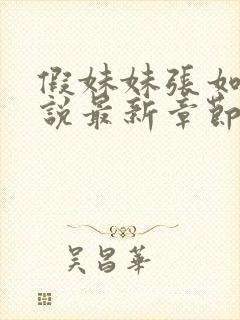 假妹妹張如
說最新章節
吴昌華